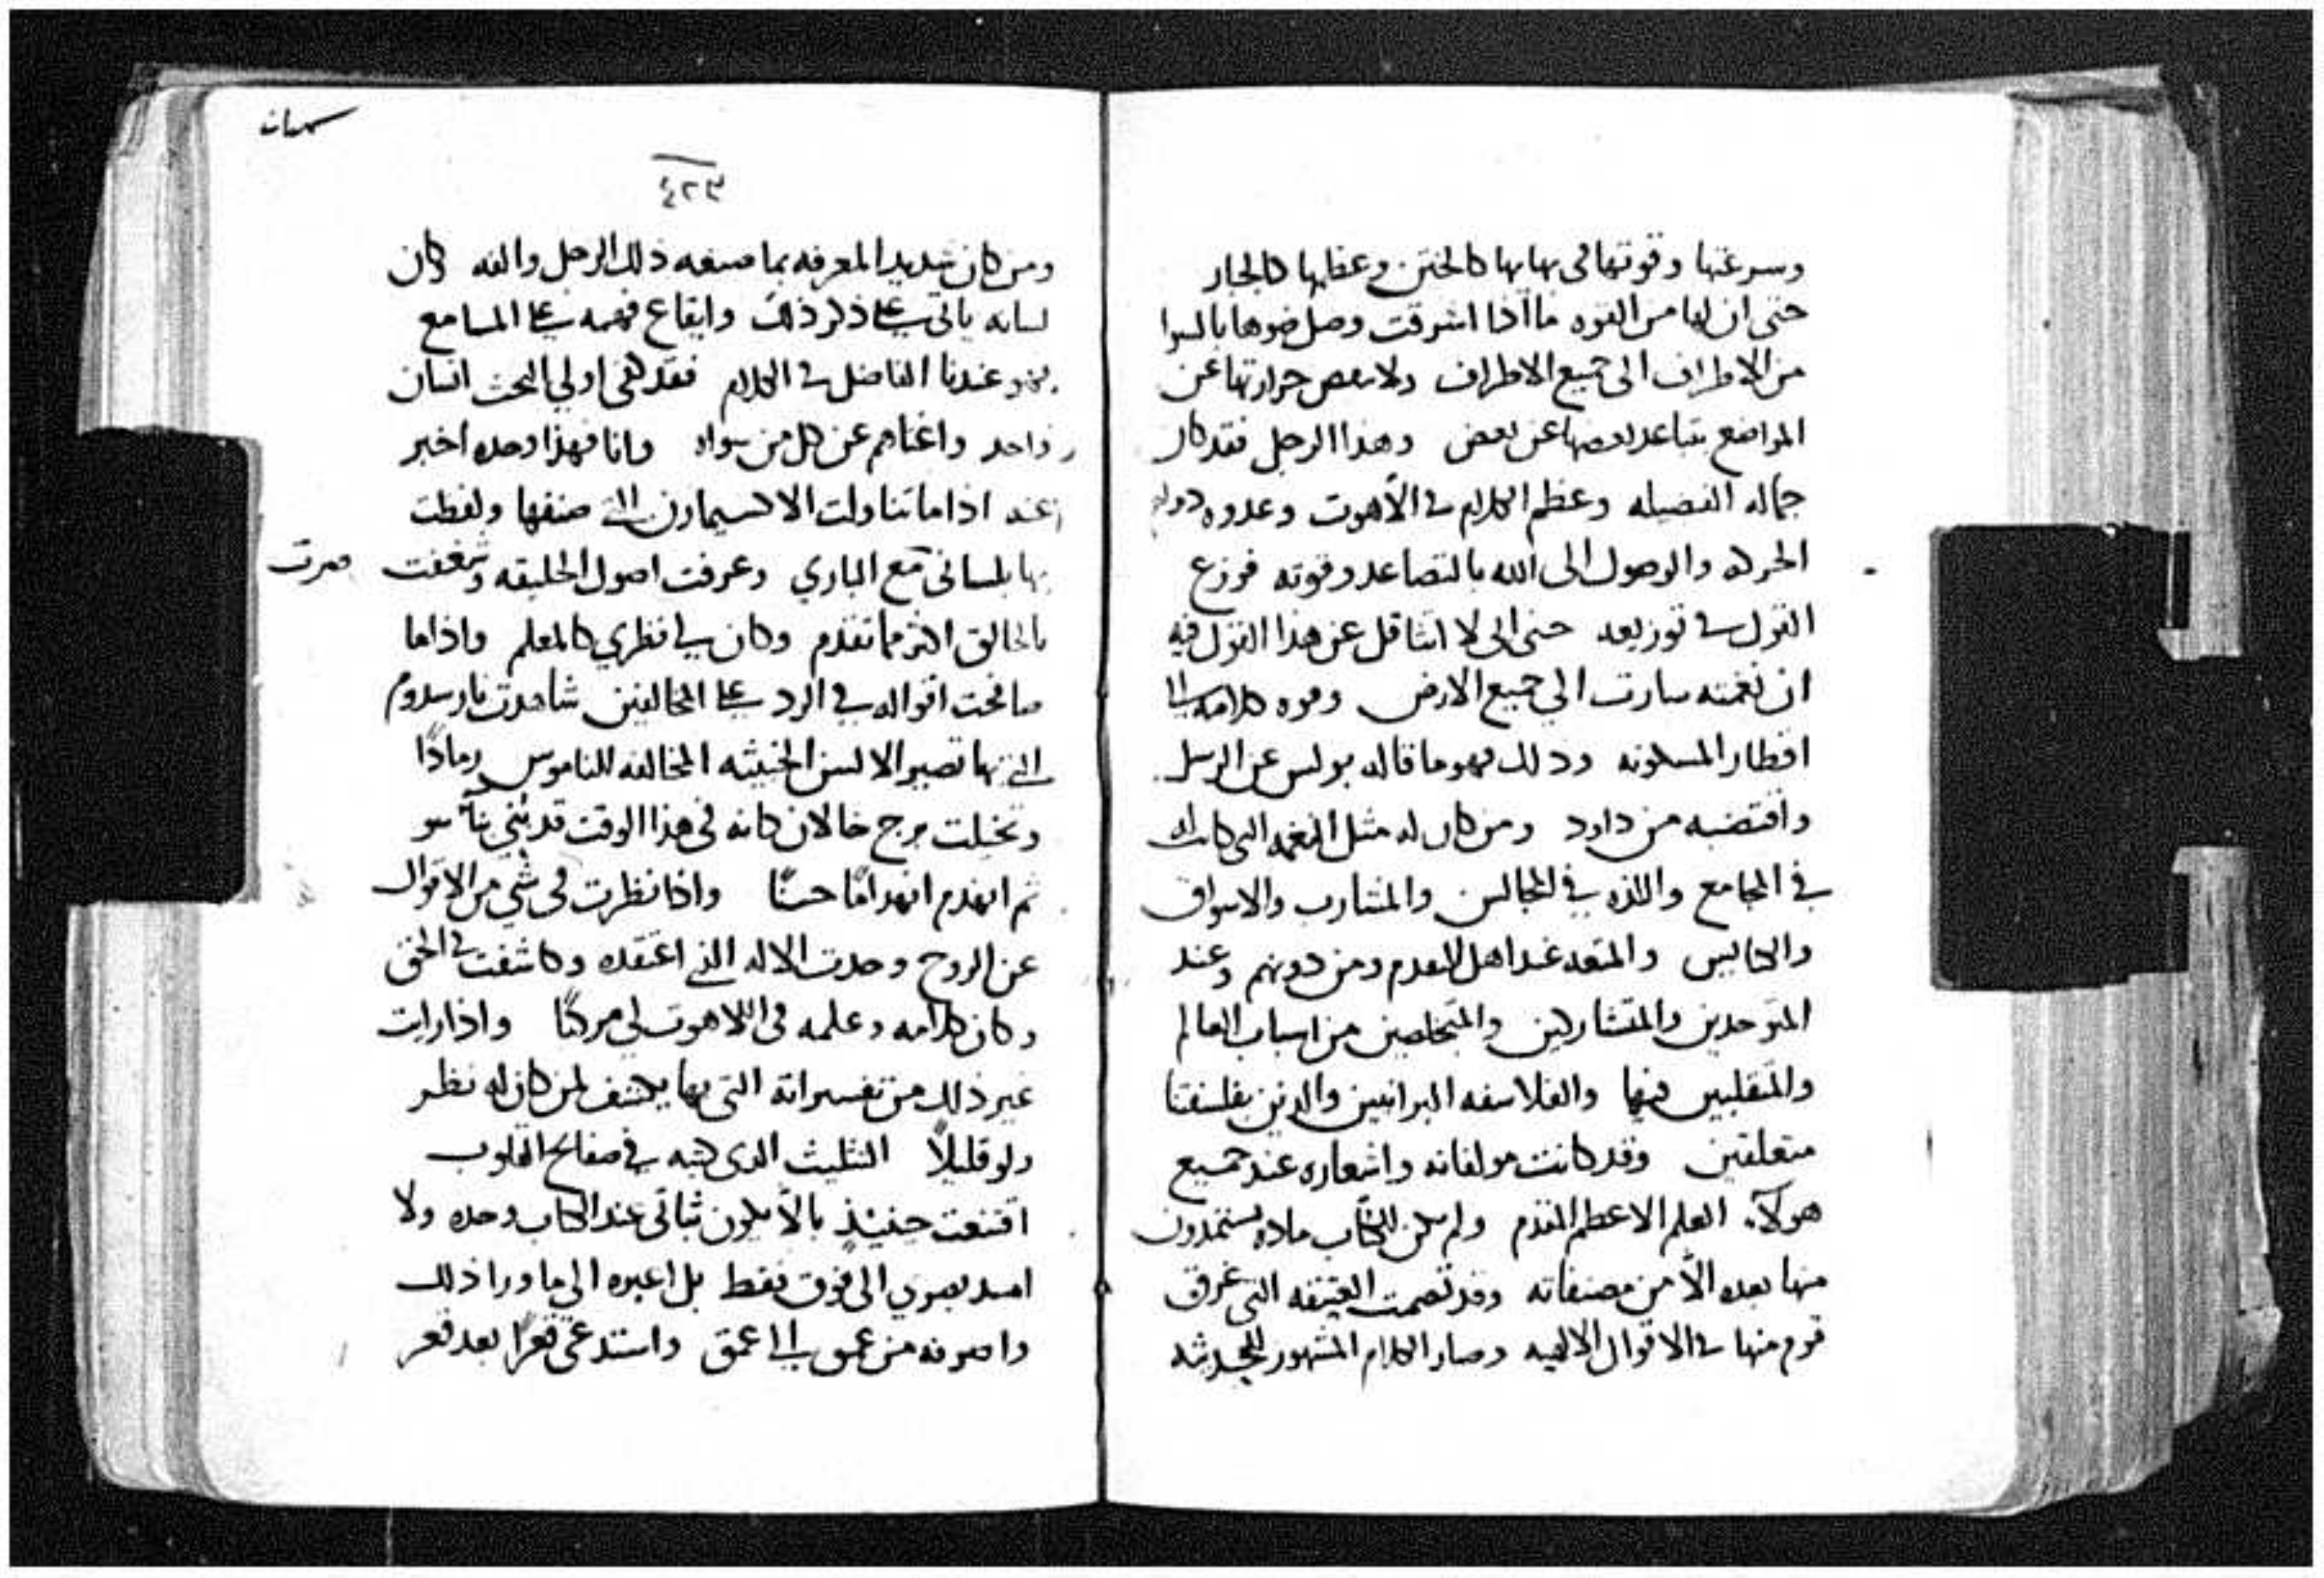 وسرعتها وقوتها في بهايها كالختن وعظمها كالجبار
حتى ان لها من القوه ما اذا اشرقت وصل ضوها بالسوا
من الاطراف الى جميع الاطراف ولا حرارتها عن
المواضع بتباعد بعضها عن بعض وهذا الرجل فقد كان
جماله الفضيله وعظم الكلام في الآهوت وعدوه
الحركه والوصول الى الله بالتصاعد وقوته فرزع
القول في توزيعه حتى انى لا اتثاقل عن هذا القول فيه
ان نغمته سارت الي جميع الارض وقوه كلامه الى
اقطار المسكونه وذلك فهو ما قاله بولس عن الرسل
واقتضبه من داود ومن كان له مثل النغمه التي كانت له
في المجامع واللذه في المجالس والمشارب والاسواق
والكنايس والمتعه عند اهل التقدم ومن دونهم وعند
المتوحدين والمتشاركين والمتخلصين من اسباب العالم
والمتقلبين فيها والفلاسفه البرانيين والذين بفلسفتنا
متعلقين وقد كانت مولفاته واشعاره عند جميع
هولآء العلم الاعظم المقدم ولم يكن للكتاب ماده يستمدون
منها بعده الّا من مصنفاته وقد تصمت العتيقه التي عرق
قوم منها في الاقوال الالهيه وصار الكلام المشهور للحديثه
٤٢٣
ومن كان شديد المعرفه بما صنفه ذلك الرجل والفه وكان
لسانه ياتي على ذكر ذلك وايقاع فهمه على المسامع
فهو عندنا الفاضل في الكلام فقد كفى اولي البحث انسان
واحد واغناهم عن كل من سواه وانا فهذا وحده اخبر
عنه اذا ما تناولت الاكسيمارن التي صنفها ولفظت
بها بلسانى مع الباري وعرفت اصول الخليقه وشغفت
بالخالق اكثر مما تقدم وكان في نظري كالمعلم واذا ما
صافحت اقواله في الرد على المخالفين شاهدت نار سدوم
التي بها تصير الالسن الخبيثه المخالفه للناموس رمادًا
وتخيلت برج خالان كانه في هذا الوقت قد بُني
ثم انهدم انهدامًا حسنًا واذا نظرت في شي من الاقوال
عن الروح وجدت الاله الذي اعتقده وكاشفت في الحق
وكان كلامه وعلمه في اللاهوت لي مركبًا واذا رايت
غير ذلك من تفسيراته التي بها يكشف لمن كان له نظر
ولو قليلًا التثليث الذي كتبه في صفايح القلوب
اقتنعت حينيذٍ بالّا يكون ثباتي عند الكتاب وحده ولا
امد بصري الى فوق فقط بل اعبره الي ما ورا ذلك
واصرفه من عمق الى عمق واستدعي قعرًا بعد قعر